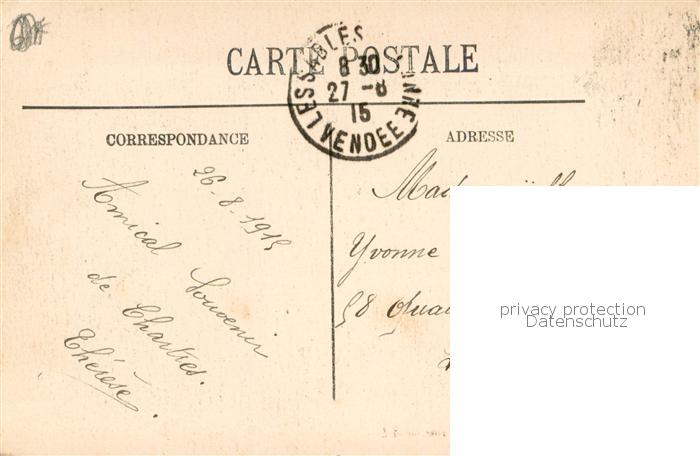 CARTE POSTALE
LES SABLES D'OLONNE
8 30
27 - 8
15
VENDEE
CORRESPONDANCE
26-8-1915
Amical Souvenir
de Chartres.
Thérèse.
ADRESSE
Yvonne
58 Quai
privacy protection
Datenschutz